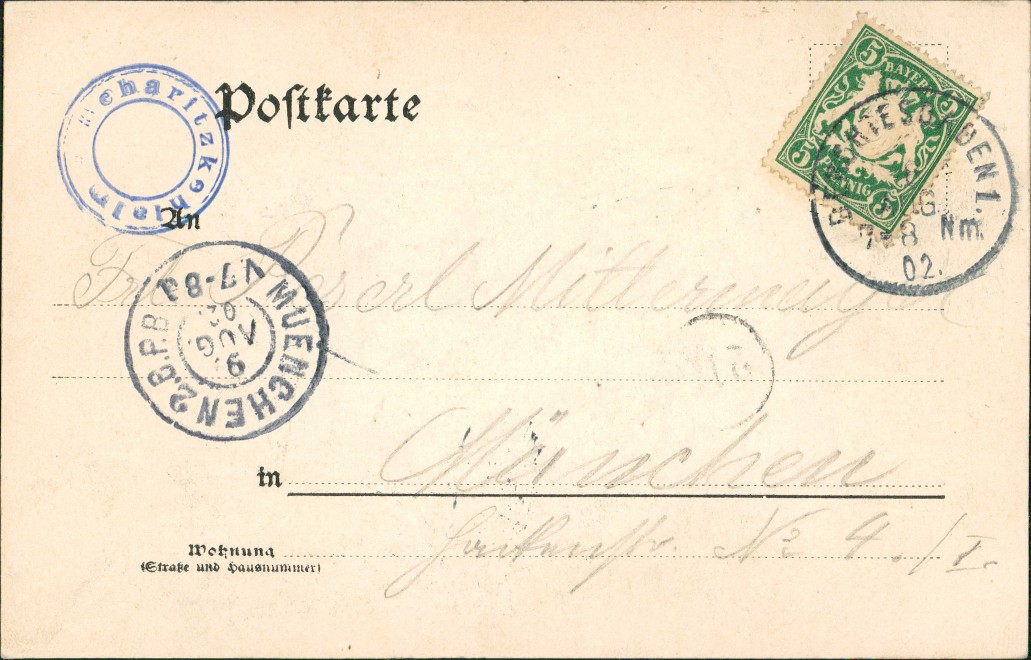 Scharitzkehlalm
Postkarte
5 BAYERN 5
5 PFENNIG 5
BERCHTESGADEN 1.
7-8 Nm.
02.
An
Frl. Mittermayer
MUENCHEN 2.B.P.B.
V7-8
02
AUG
9.
in München
Wohnung
(Straße und Hausnummer)
No 4./I.